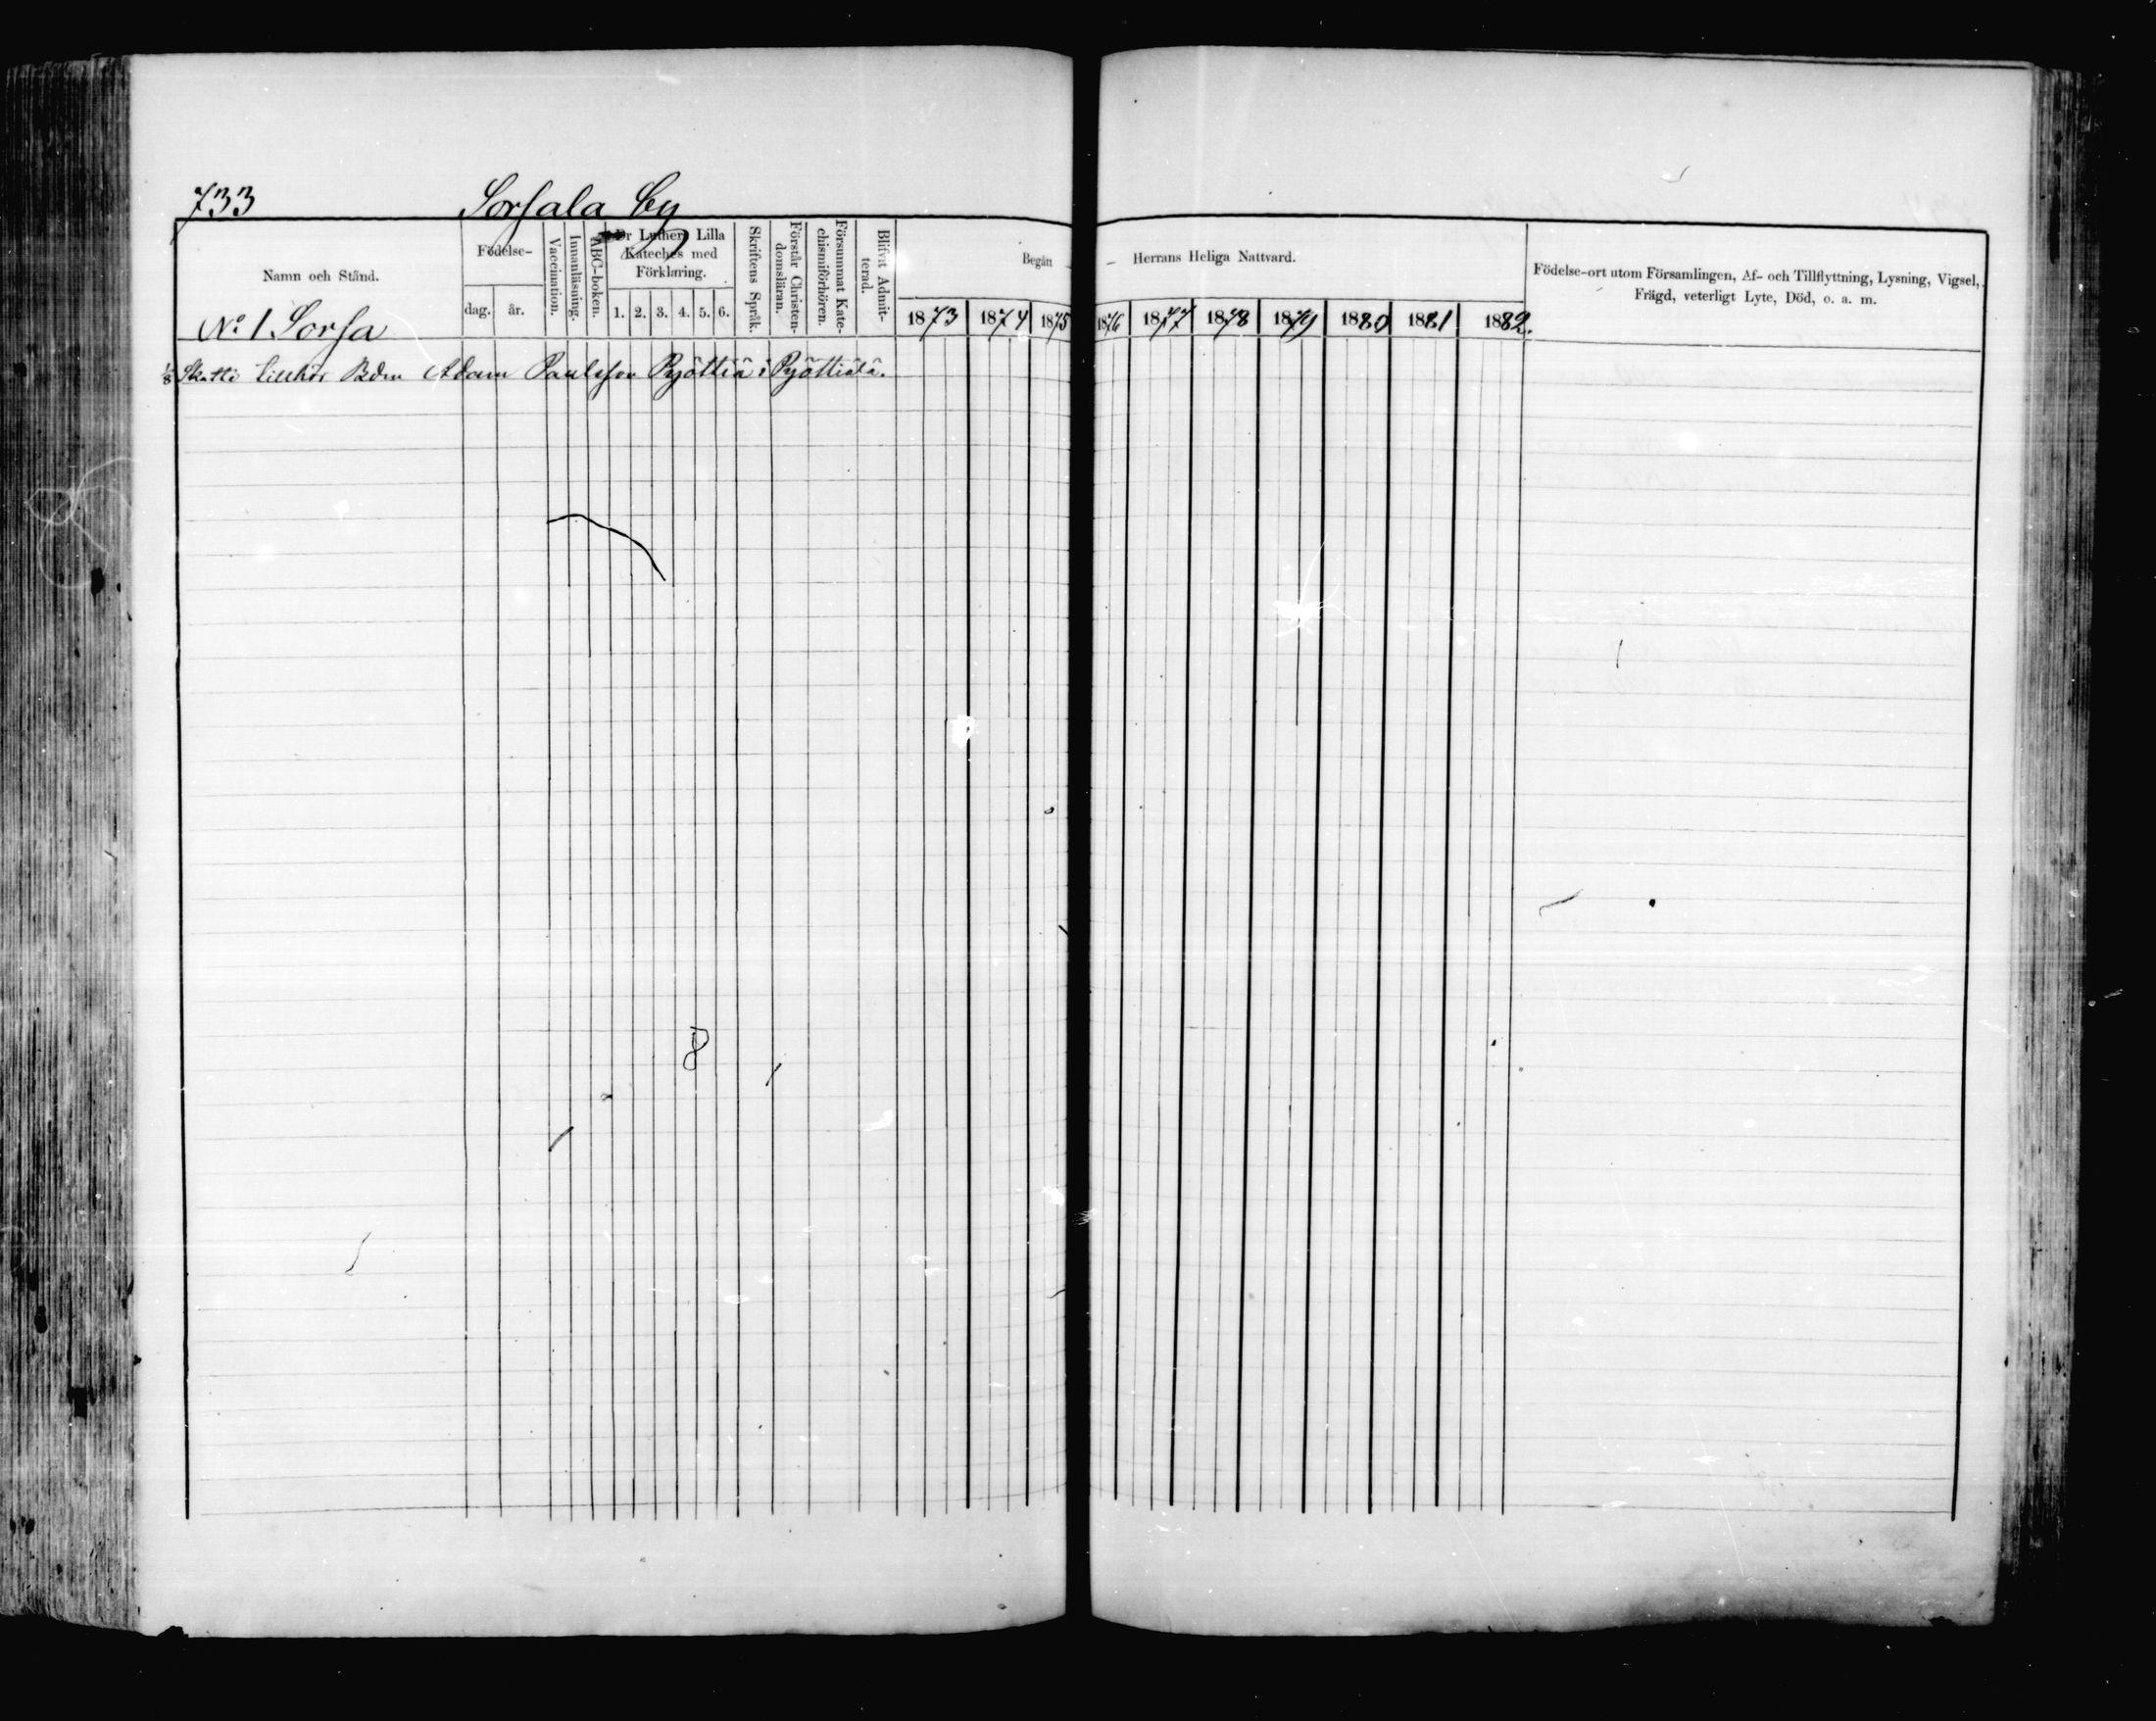 733 Sorsala by
Namn och Stånd.
Födelse-
dag. år.
Vaccination.
Innanläsning.
ABC-boken.
Dr Luthers Lilla
Kateches med
Förklaring.
1. 2. 3. 4. 5. 6.
Skriftens Språk.
Förstår Christen-
domsläran.
Försummat Kate-
chismiförhören.
Blifvit Admit-
terad.
Begått Herrans Heliga Nattvard.
1873 1874 1875 1876 1877 1878 1879 1880 1881 1882.
Födelse-ort utom Församlingen, Af- och Tillflyttning, Lysning, Vigsel,
Frägd, veterligt Lyte, Död, o. a. m.
No 1 Sorsa
1/8 Skatte tillhör Bdn Adam Paulsson Pyöttiä i Pyöttiälä.